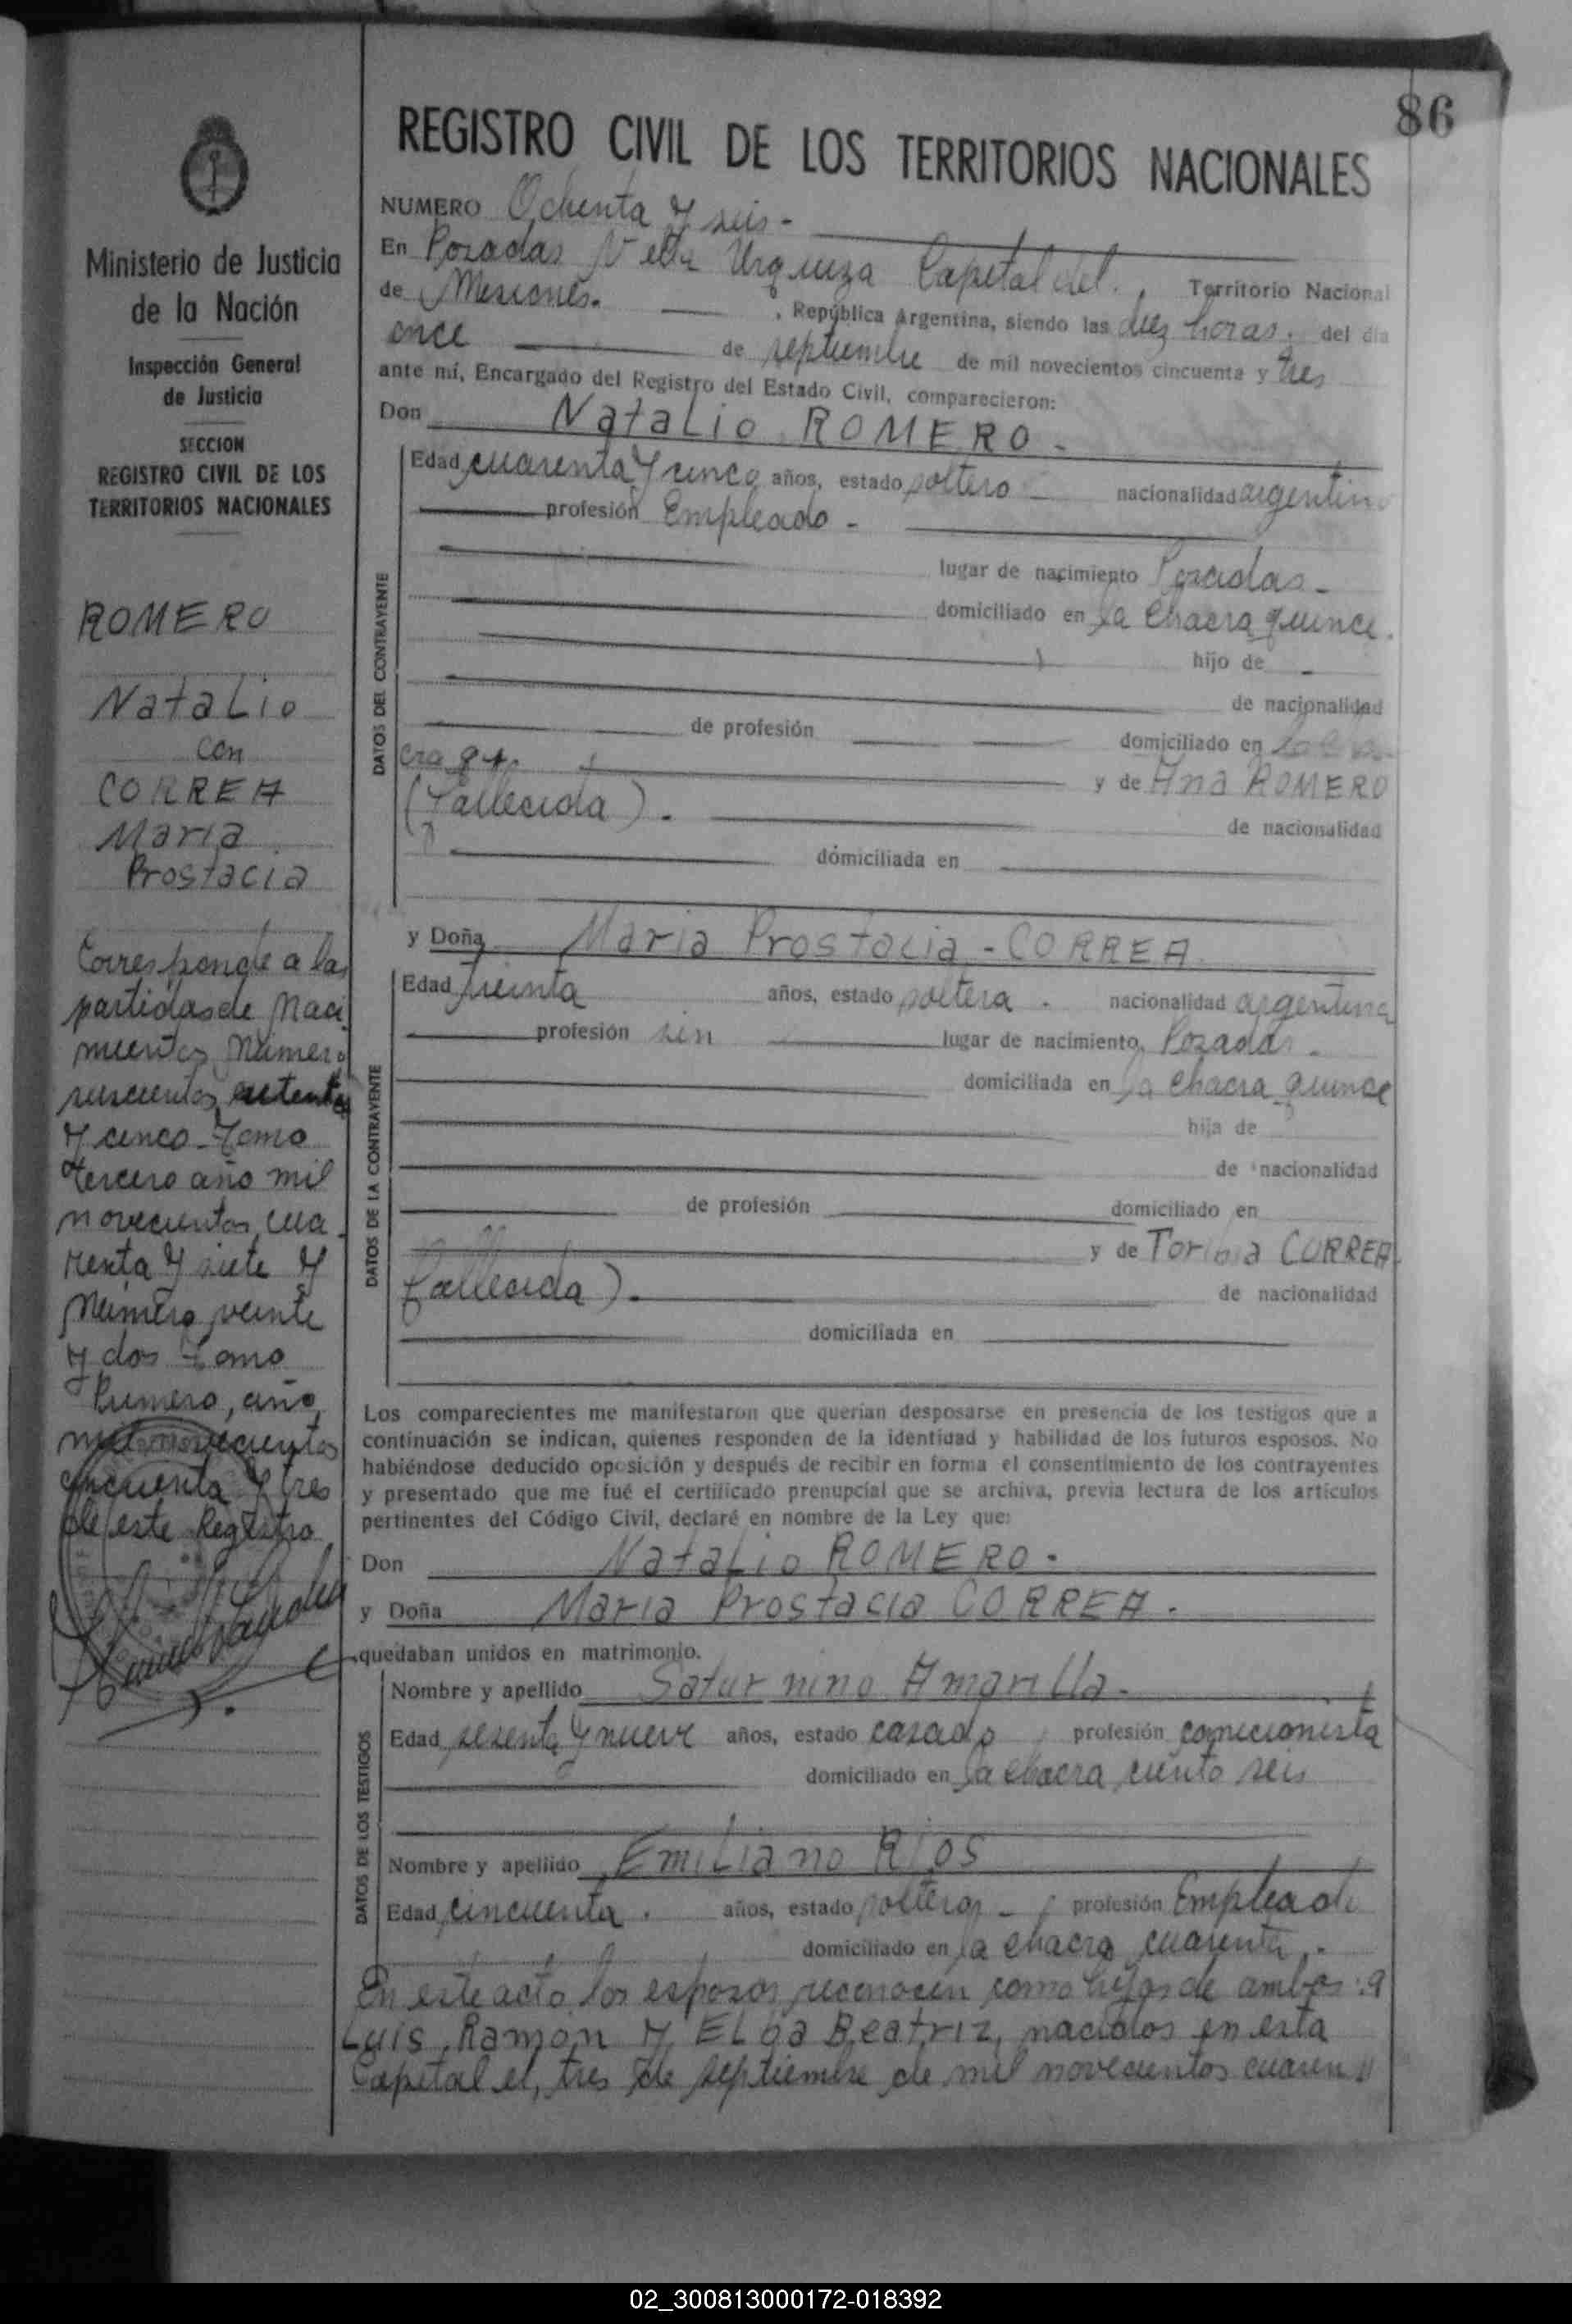 86
REGISTRO CIVIL DE LOS TERRITORIOS NACIONALES
Ministerio de Justicia
de la Nación
Inspección General
de Justicia
SECCION
REGISTRO CIVIL DE LOS
TERRITORIOS NACIONALES
ROMERO
Natalio
con
CORREA
Maria
Prostacia
Corresponde a las
partidas de Naci
mientos Número
seiscientos setenta
y cinco Tomo
tercero año mil
novecientos cua
renta y siete y
Número veinte
y dos Tomo
Primero, año
mil novecientos
cincuenta y tres
de este Registro
NUMERO Ochenta y seis -
En Posadas Villa Urquiza Capital del. Territorio Nacional
de Misiones. , República Argentina, siendo las diez horas. del día
once de septiembre de mil novecientos cincuenta y tres
ante mí, Encargado del Registro del Estado Civil, comparecieron:
Don Natalio ROMERO -
DATOS DEL CONTRAYENTE
Edad cuarenta y cinco años, estado soltero nacionalidad argentino
profesión Empleado -
lugar de nacimiento Posadas -
domiciliado en la chacra quince.
hijo de -
de nacionalidad
de profesión domiciliado en
y de Ana ROMERO
(Fallecida). de nacionalidad
domiciliada en
y Doña Maria Prostacia - CORREA
DATOS DE LA CONTRAYENTE
Edad treinta años, estado soltera . nacionalidad argentina
profesión sin lugar de nacimiento Posadas .
domiciliada en la chacra quince
hija de
de nacionalidad
de profesión domiciliado en
y de Toribia CORREA
fallecida). de nacionalidad
domiciliada en
Los comparecientes me manifestaron que querían desposarse en presencia de los testigos que a
continuación se indican, quienes responden de la identidad y habilidad de los futuros esposos. No
habiéndose deducido oposición y después de recibir en forma el consentimiento de los contrayentes
y presentado que me fué el certificado prenupcial que se archiva, previa lectura de los artículos
pertinentes del Código Civil, declaré en nombre de la Ley que:
Don Natalio ROMERO -
y Doña Maria Prostacia CORREA .
quedaban unidos en matrimonio.
DATOS DE LOS TESTIGOS
Nombre y apellido Saturnino Amarilla -
Edad sesenta y nueve años, estado casado profesión comicionista
domiciliado en la chacra ciento seis
Nombre y apellido Emiliano Rios
Edad cincuenta . años, estado soltero - profesión Empleado
domiciliado en la chacra cuarenta .
En este acto los esposos reconocen como hijos de ambos: a
Luis Ramón y Elba Beatriz, nacidos en esta
Capital el, tres de septiembre de mil novecientos cuaren //
02_300813000172-018392